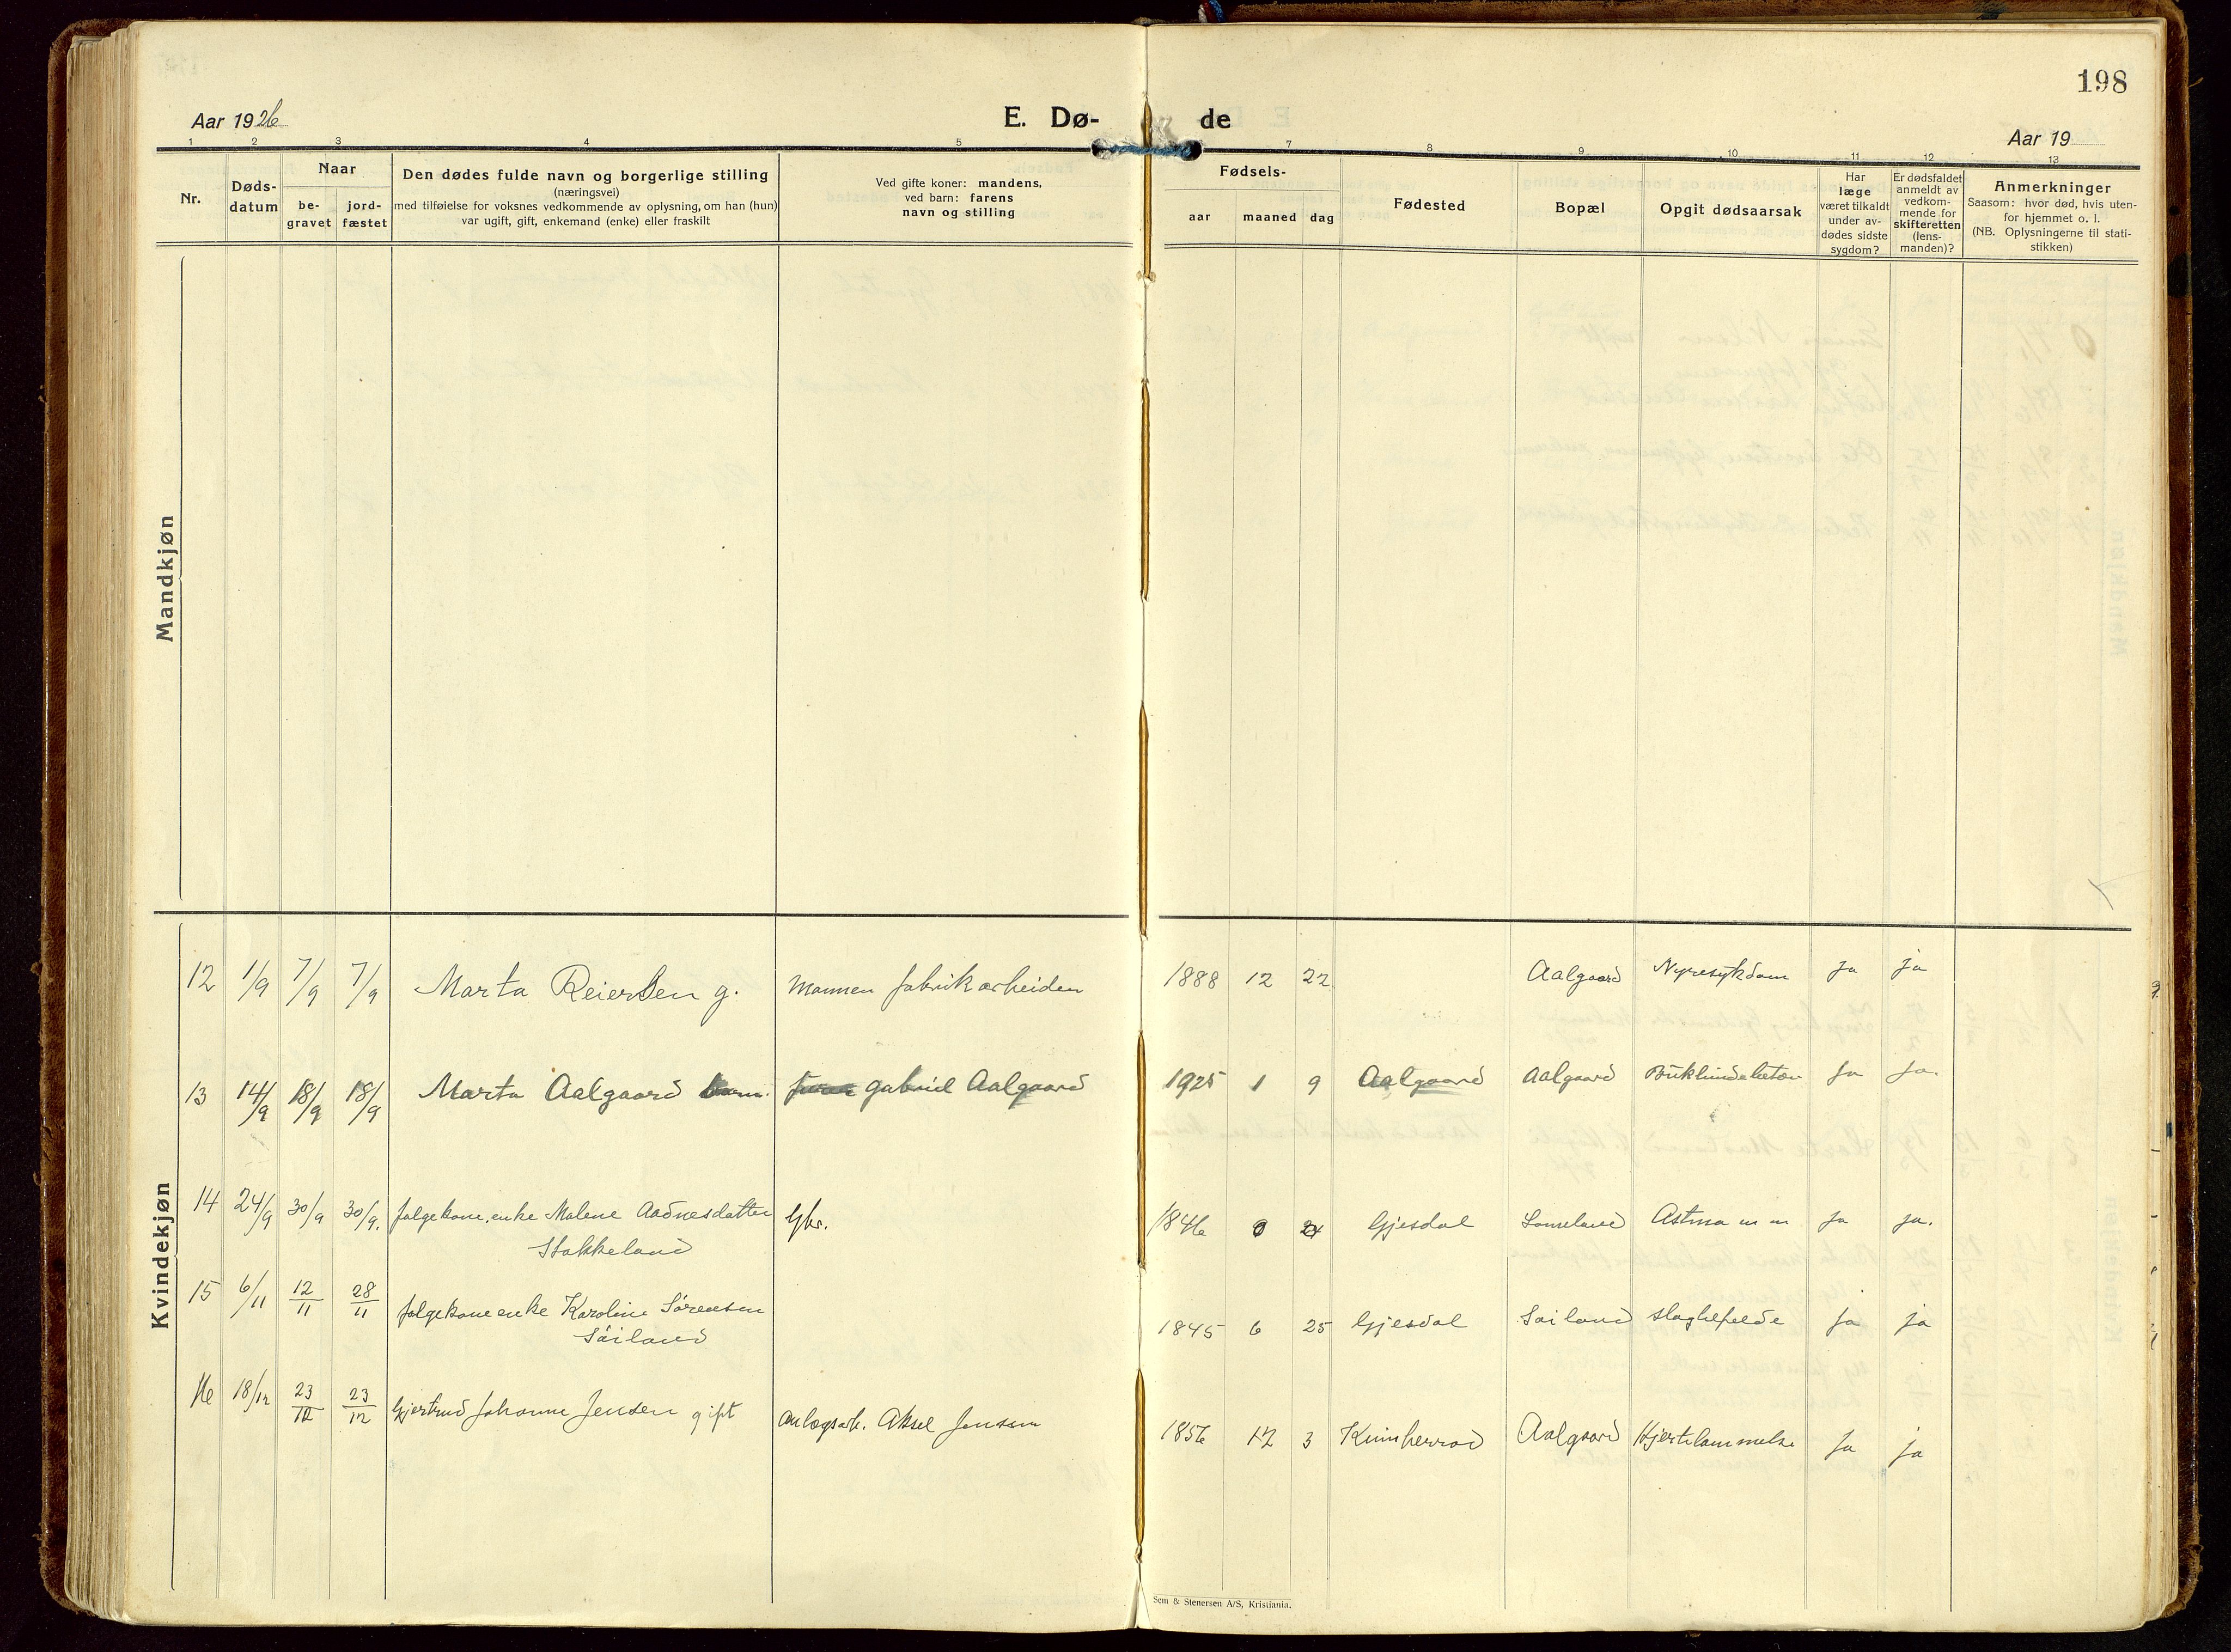 198
Aar 1926
E. Dø- de
Aar 19
1 2 3 4 5 7 8 9 10 11 12 13
Nr.
Døds-
datum
Naar
be-
gravet
jord-
fæstet
Den dødes fulde navn og borgerlige stilling
(næringsvei)
med tilføielse for voksnes vedkommende av oplysning, om han (hun)
var ugift, gift, enkemand (enke) eller fraskilt
Ved gifte koner: mandens,
ved barn: farens
navn og stilling
Fødsels-
aar maaned dag
Fødested
Bopæl
Opgit dødsaarsak
Har
læge
været tilkaldt
under av-
dødes sidste
sygdom?
Er dødsfaldet
anmeldt av
vedkom-
mende for
skifteretten
(lens-
manden)?
Anmerkninger
Saasom: hvor død, hvis uten-
for hjemmet o. l.
(NB. Oplysningerne til stati-
stikken)
Mandkjøn
Kvindekjøn
12 1/9 7/9 7/9 Marta Reiersen g. mannen fabrikarbeider 1888 12 22 Aalgaard Nyresykdom ja ja
13 14/9 18/9 18/9 Marta Aalgaard barn. Gabriel Aalgaard 1925 1 9 Aalgaard Aalgaard ja ja.
14 24/9 30/9 30/9. følgekone, enke Malene Aadnesdatter Gbr. 1846 Gjesdal Astma m m ja ja.
Stokkeland
15 6/11 12/11 28/11 følgekone enke Karoline Sørensen 1845 6 25 Gjesdal Søiland ja ja
Søiland
16 18/12 23/12 23/12 Gjertrud Johanne Jensen gift anlegsarb. Aksel Jensen 1856 12 3 Kvinherrad Aalgaard Hjertelammelse ja ja
Sem & Stenersen A/S, Kristiania.